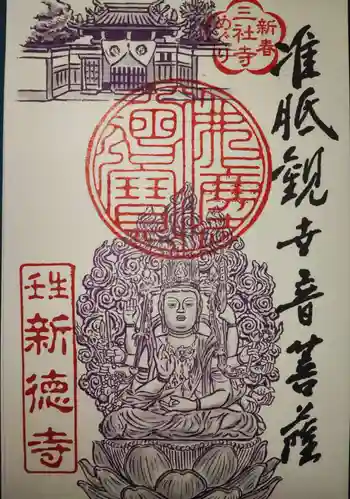 新春
三社寺
めぐり
准胝観世音菩薩
佛法
僧寶
壬生
新徳寺